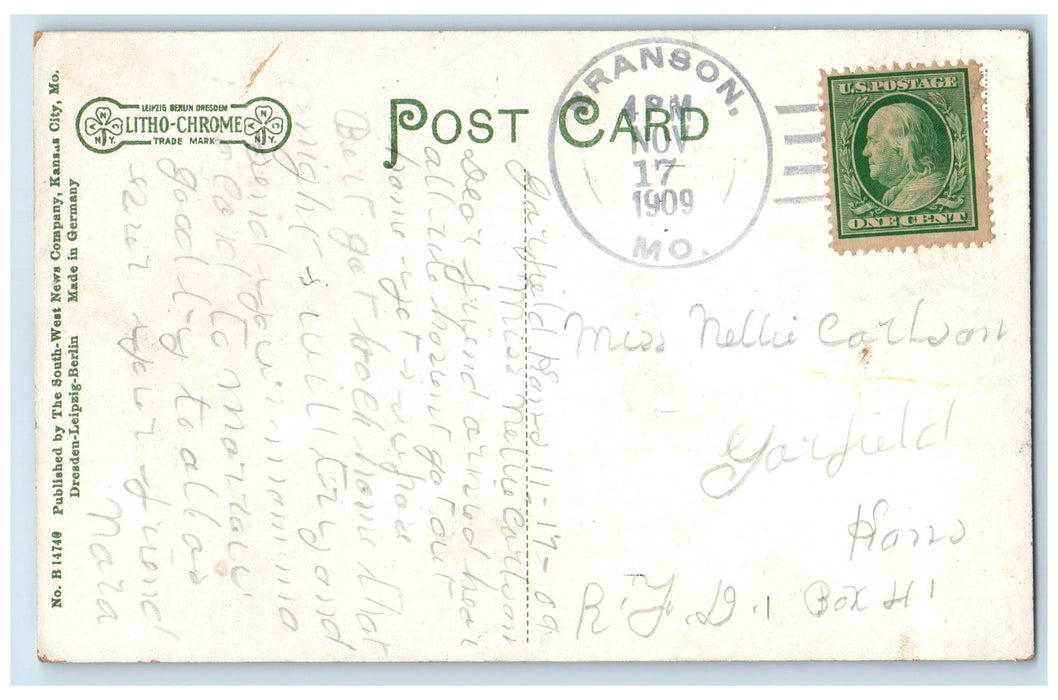 No. B 14740 Published by The South-West News Company, Kansas City, Mo.
Dresden-Leipzig-Berlin Made in Germany
LEIPZIG BERLIN DRESDEN
LITHO-CHROME
TRADE MARK
N K N Y.
N N Y.
POST CARD
BRANSON,
4 PM
NOV
17
1909
MO.
U.S. POSTAGE
ONE CENT
Garfield Kans 11-17-09
Miss Nellie Carlson
Dear friend arived hear
all rite havent got out
home yet - supose
Bert got back home that
night. I will try and
send your
to morrow
good by to all as
ever your friend
Nora
Miss Nellie Carlson
Garfield
Kans
R.F.D. 1 Box 41